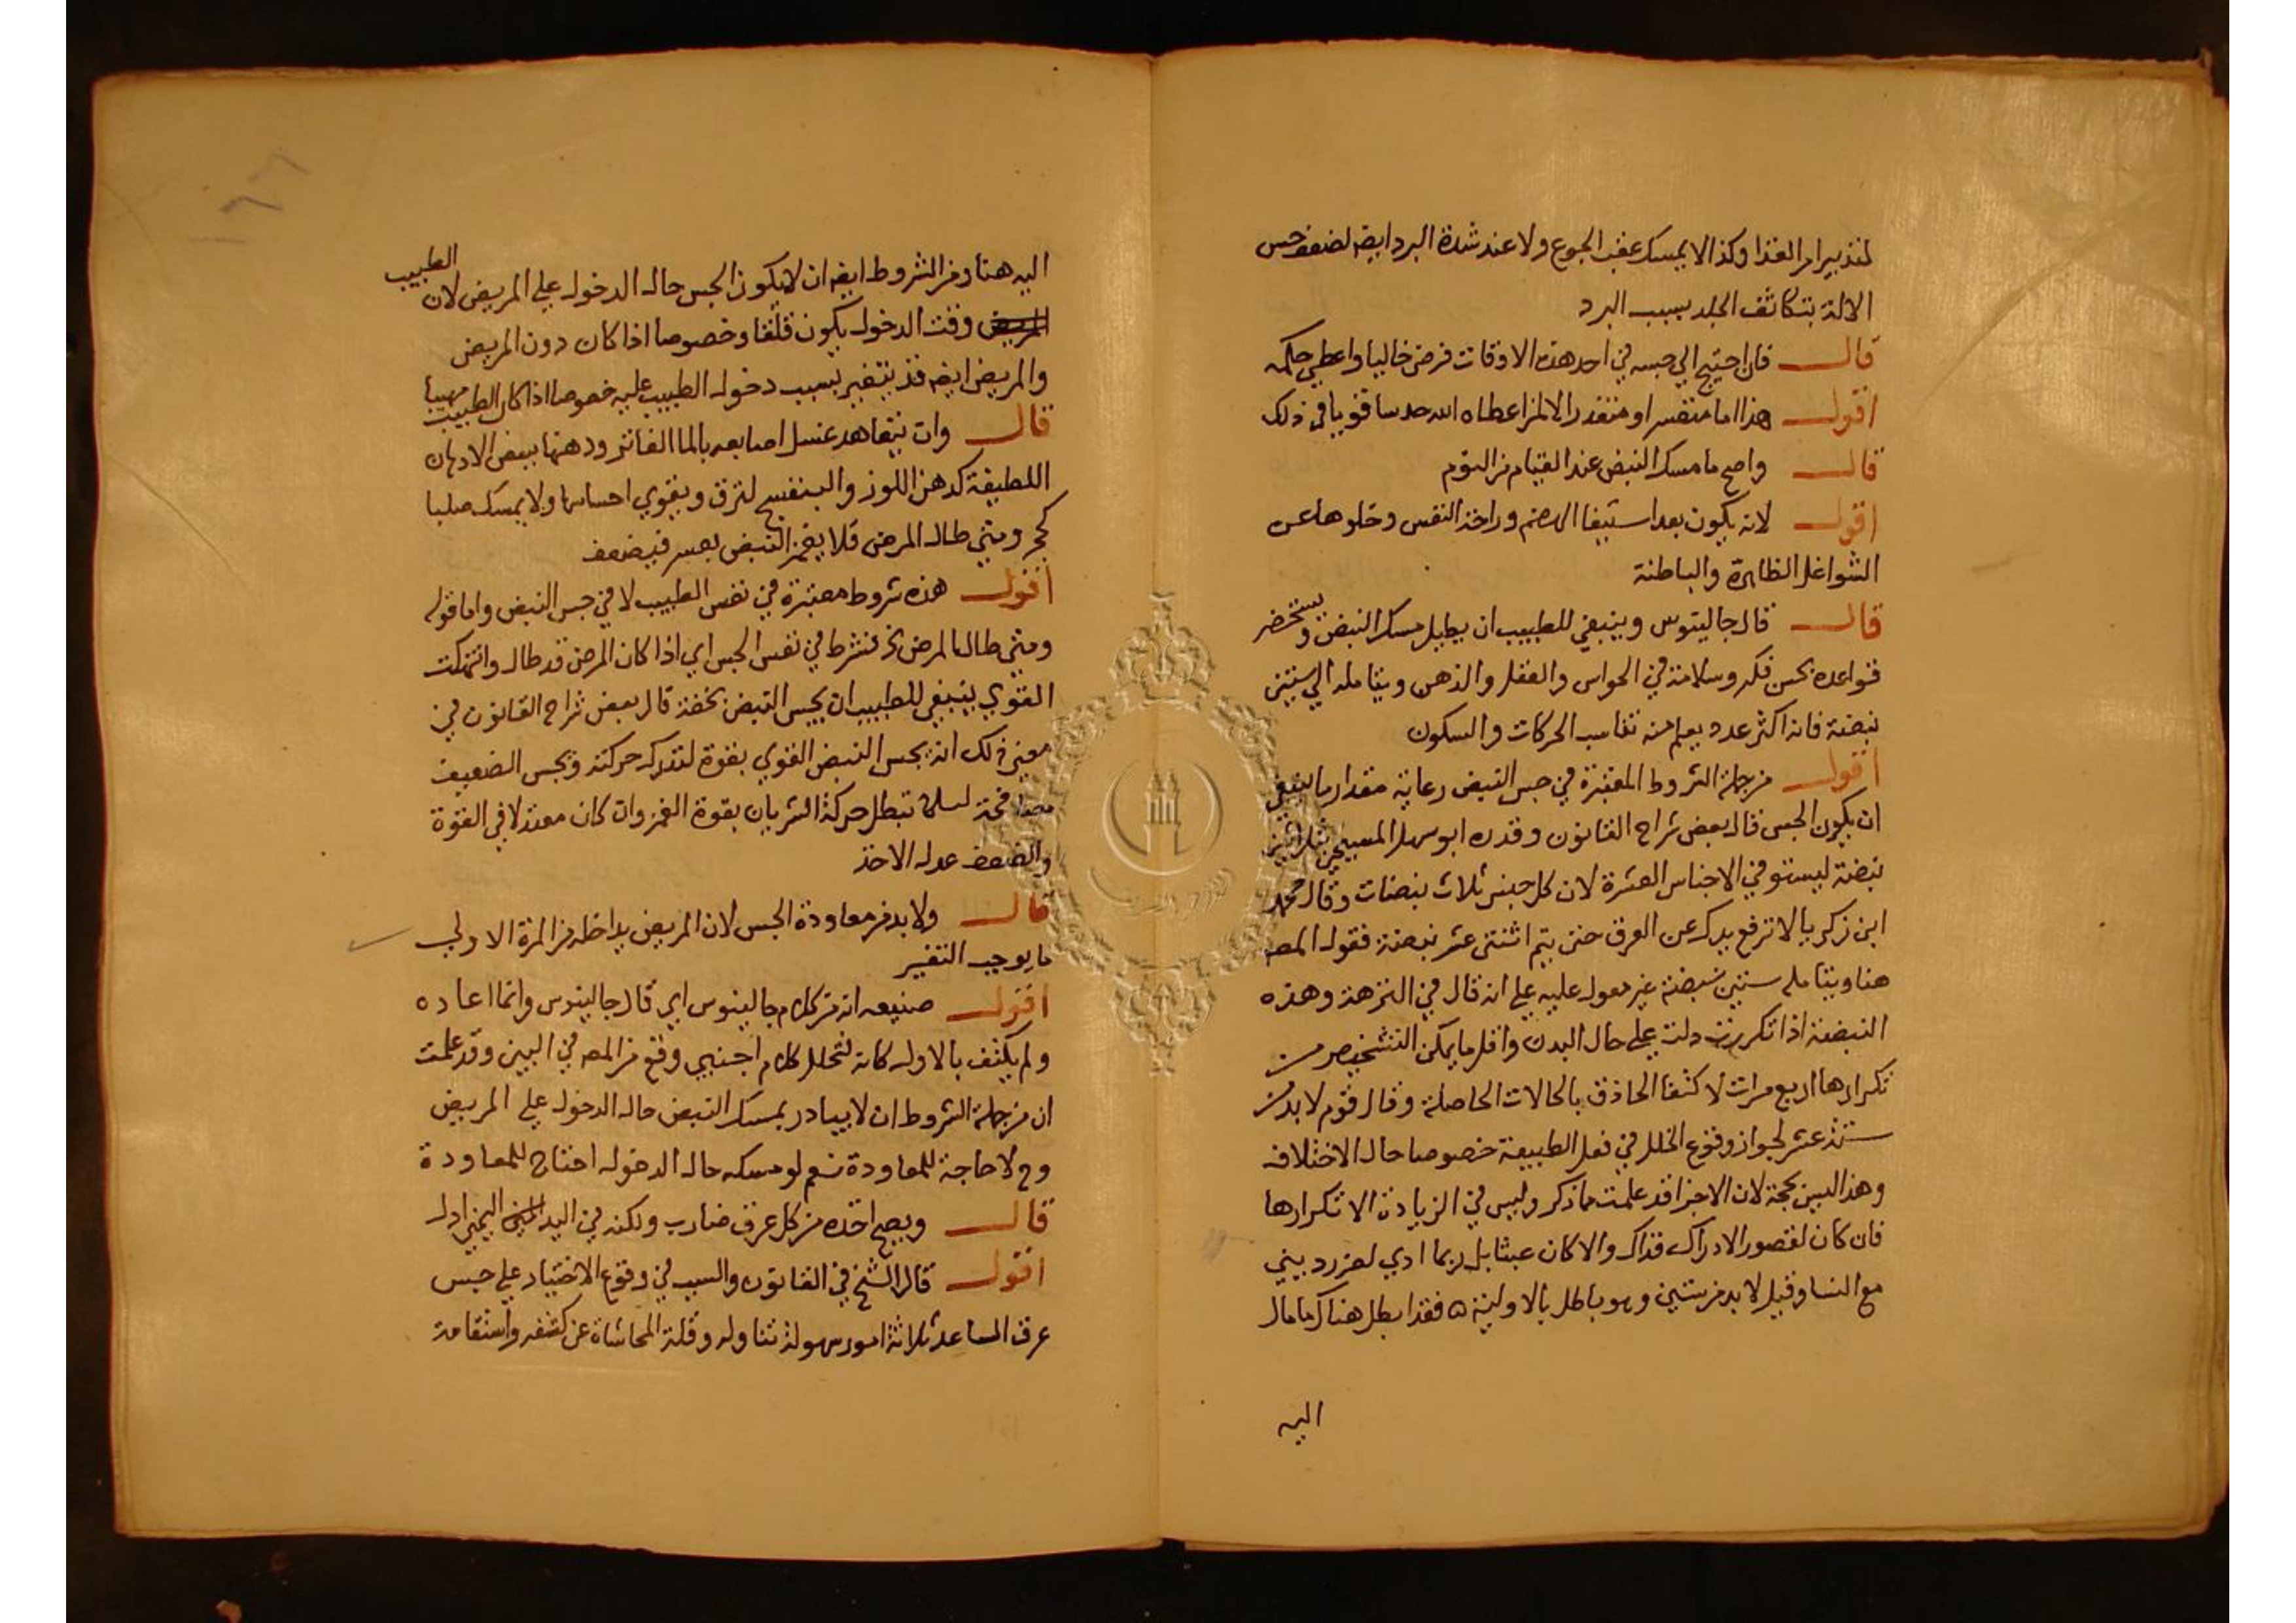 لتدبير امر الغذا وكذا لا يمسك عقب الجوع ولا عند شدة البرد ايضا لضعف حس
الالة بتكاثف الجلد بسبب البرد
قال فان احتيج الي جسه في احد هذه الاوقات فرض خاليا واعطي حكمه
اقول هذا اما متعسر او متعذر الا لمن اعطاه الله حدسا قويا في ذلك
قال واصح ما مسك النبض عند القيام من النوم
اقول لانه يكون بعد استيفا الهضم وراحة النفس وخلوها عن
الشواغل الظاهرة والباطنة
قال قال جالينوس وينبغي للطبيب ان يطيل مسك النبض ويستحضر
قواعده بحسن فكر وسلامة في الحواس والعقل والذهن ويتامله الي ستين
نبضة فانه اكثر عدد يعلم منه تناسب الحركات والسكون
اقول من جملة الشروط المعتبرة في جس النبض رعاية مقدار ما ينبغي
ان يكون الجس قال بعض شراح القانون وقدره ابو سهل المسيحي بثلاثين
نبضة ليستوفي الاجناس العشرة لان كل جنس ثلاث نبضات وقال محمد
ابن زكريا لا ترفع يدك عن العرق حتى يتم اثنتى عشر نبضة فقول المص
هنا ويتامله ستين نبضة غير معول عليه علي انه قال في النزهة وهذه
النبضة اذا تكررت دلت علي حال البدن واقل ما يمكن التشخيص من
تكرارها اربع مرات لاكتفا الحاذق بالحالات الحاصلة وقال قوم لا بد من
ستة عشر لجواز وقوع الخلل في فعل الطبيعة خصوصا حال الاختلاف
وهذا ليس بحجة لان الاجزا قد علمت مما ذكر وليس في الزيادة الا تكرارها
فان كان لقصور الادراك فذاك والا كان عبثا بل ربما ادي لضرر ديني
مع النسا وقيل لا بد من ستين وهو باطل بالاولية ه فقد ابطل هناك ما مال
اليه
اليه هنا ومن الشروط ايضا ان لا يكون الجس حال الدخول علي المريض لان الطبيب
المريض وقت الدخول يكون قلقا وخصوصا اذا كان دون المريض
والمريض ايضا قد يتغير بسبب دخول الطبيب عليه خصوصا اذا كان الطبيب مهيبا
قال وان يتعاهد غسل اصابعه بالما الفاتر ودهنها ببعض الادهان
اللطيفة كدهن اللوز والبنفسج لترق ويقوي احساسها ولا يمسك صلبا
كحجر ومتي طال المرض فلا يغمز النبض بعسر فيضعف
اقول هذه شروط معتبرة في نفس الطبيب لا في جس النبض واما قوله
ومتي طال المرض الخ فشرط في نفس الجس اي اذا كان المرض قد طال وانتهكت
القوي ينبغي للطبيب ان يجس النبض بخفة قال بعض شراح القانون في
معنى ذلك انه يجس النبض القوي بقوة لتدرك حركته ويجس الضعيف
مصافحة لئلا تبطل حركة الشريان بقوة الغمز وان كان معتدلا في القوة
والضعف عدل الاخذ
قال ولا بد من معاودة الجس لان المريض يداخله من المرة الاولي
ما يوجب التغير
اقول صنيعه انه من كلام جالينوس اي قال جالينوس وانما اعاده
ولم يكتف بالاول كانه لتخلل كلام اجنبي وقع من المص في البين وقد علمت
ان من جملة الشروط ان لا يبادر بمسك النبض حال الدخول علي المريض
وح لا حاجة للمعاودة نعم لو مسكه حال الدخول احتاج للمعاودة
قال ويصح اخذه من كل عرق ضارب ولكنه في اليد اليمني ادل
اقول قال الشيخ في القانون والسبب في وقوع الاختيار علي جس
عرق الساعد ثلاثة امور سهولة تناوله وقلة المحاشاة عن كشفه واستقامة